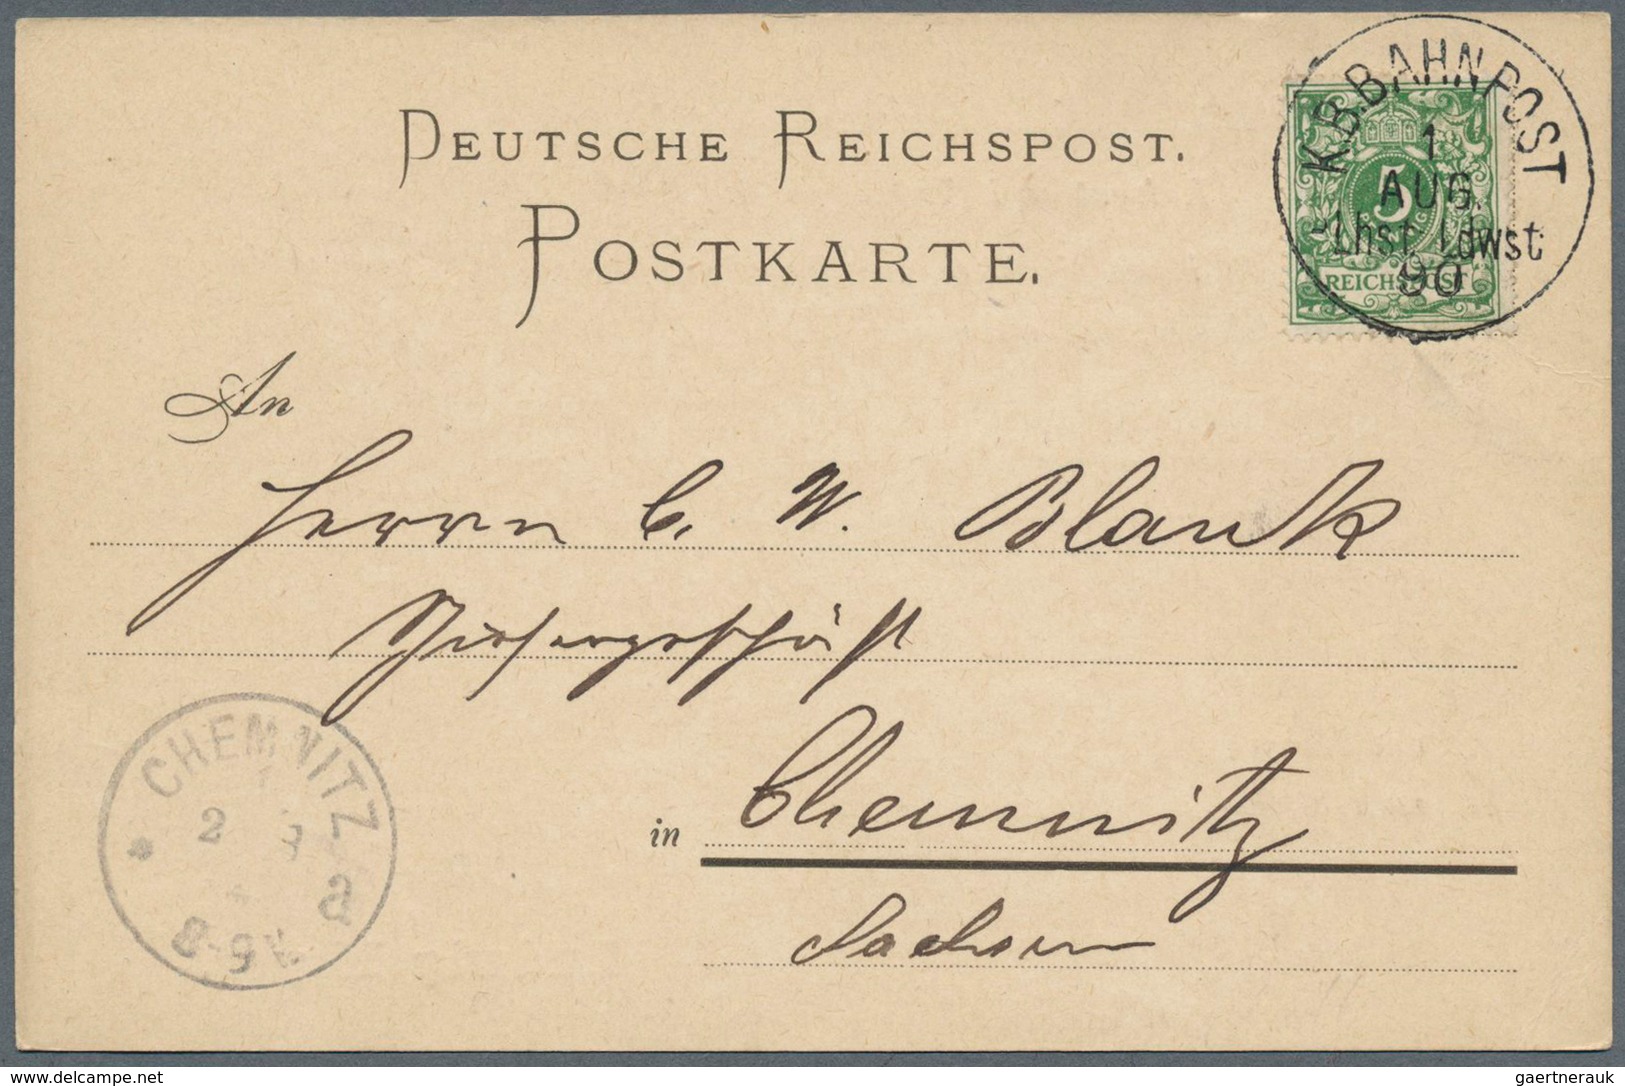 DEUTSCHE REICHSPOST.
POSTKARTE.
K.B.BAHNPOST
1
AUG.
Lhst. Ldwst.
90
5
REICHSPOST
An
Herrn C. W. Blank
in Chemnitz
Sachsen
CHEMNITZ
2 8
a
8-9V.
delcampe.net
gaertnerauk